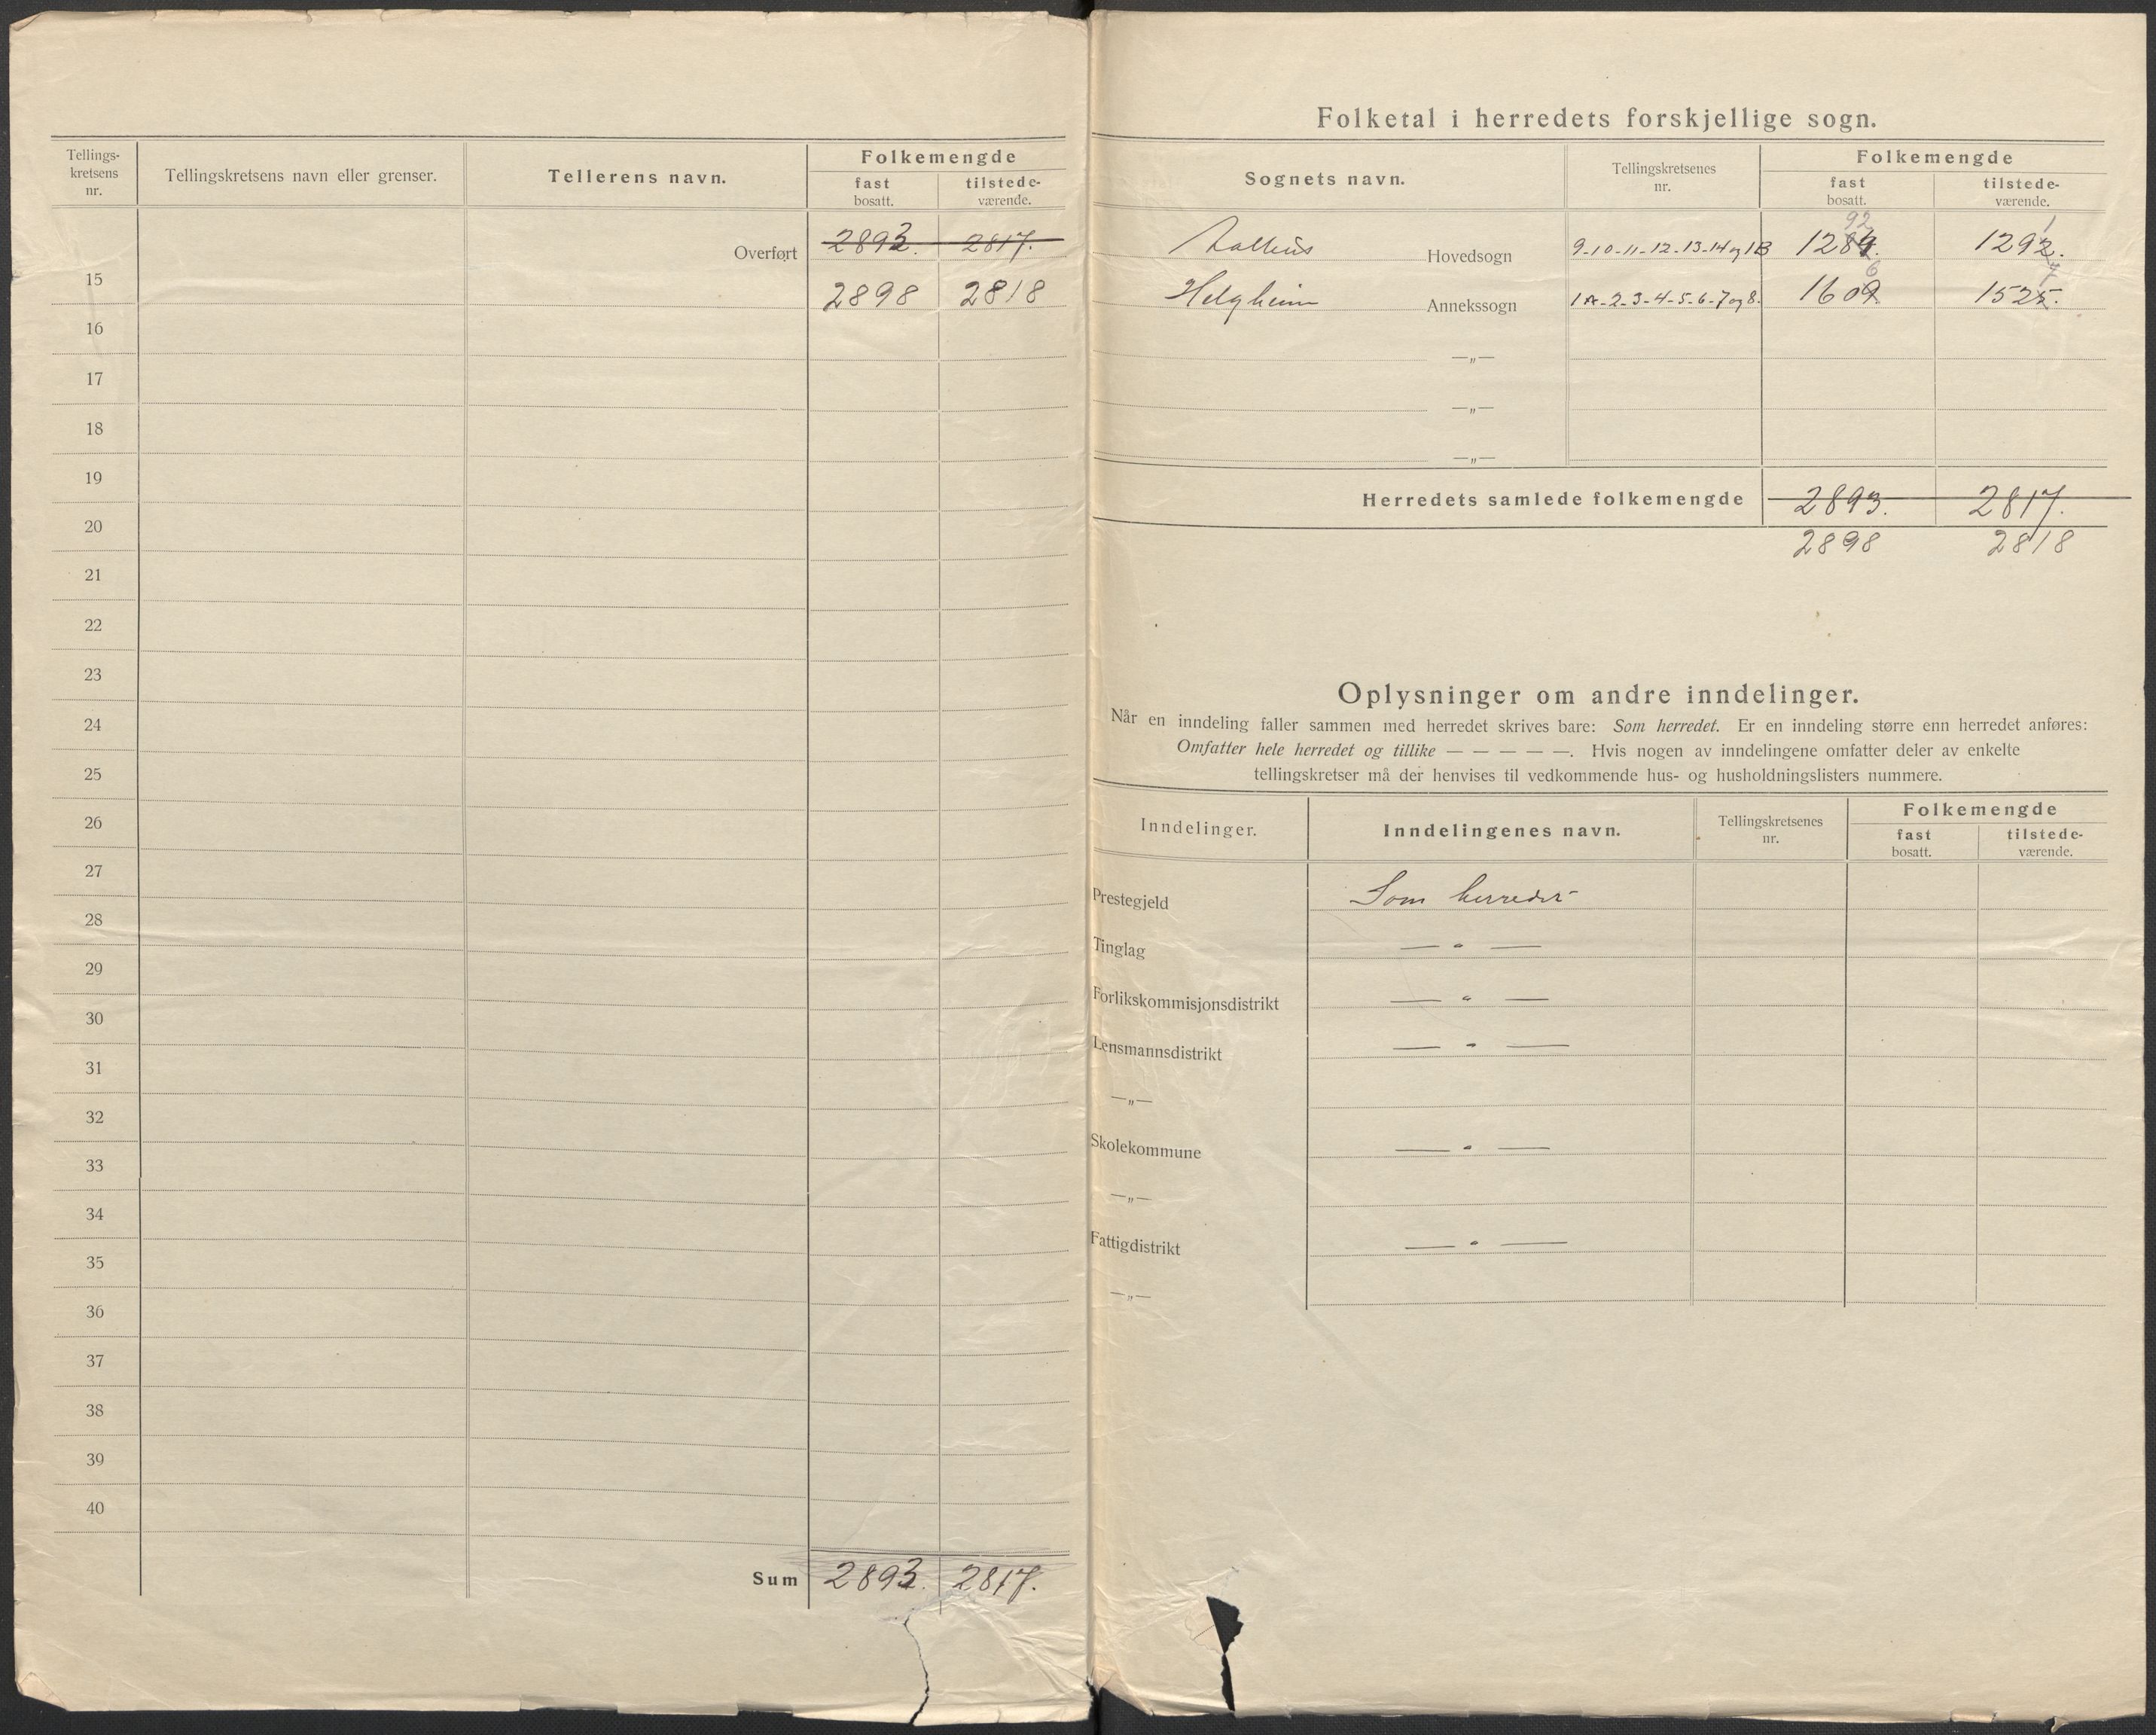 Tellings-
kretsens
nr.
Tellingskretsens navn eller grenser.
Tellerens navn.
Folkemengde
fast
bosatt.
tilstede-
værende.
Overført 2893. 2817.
15 2898 2818
16
17
18
19
20
21
22
23
24
25
26
27
28
29
30
31
32
33
34
35
36
37
38
39
40
Sum 2893. 2817.
Folketal i herredets forskjellige sogn.
Sognets navn.
Tellingskretsenes
nr.
Folkemengde
fast
bosatt.
tilstede-
værende.
92 1
Hovedsogn 9-10-11-12-13-14 og 1B 1284. 1292.
6 7
Helgheim Annekssogn 1A-2-3-4-5-6-7 og 8. 1609. 1525.
—„—
—„—
—„—
Herredets samlede folkemengde 2893. 2817.
2898 2818
Oplysninger om andre inndelinger.
Når en inndeling faller sammen med herredet skrives bare: Som herredet. Er en inndeling større enn herredet anføres:
Omfatter hele herredet og tillike — — — — —. Hvis nogen av inndelingene omfatter deler av enkelte
tellingskretser må der henvises til vedkommende hus- og husholdningslisters nummere.
Inndelinger.
Inndelingenes navn.
Tellingskretsenes
nr.
Folkemengde
fast
bosatt.
tilstede-
værende.
Prestegjeld Som herredet
Tinglag — " —
Forlikskommisjonsdistrikt — " —
Lensmannsdistrikt — " —
—„—
Skolekommune — " —
—„—
Fattigdistrikt — " —
—„—